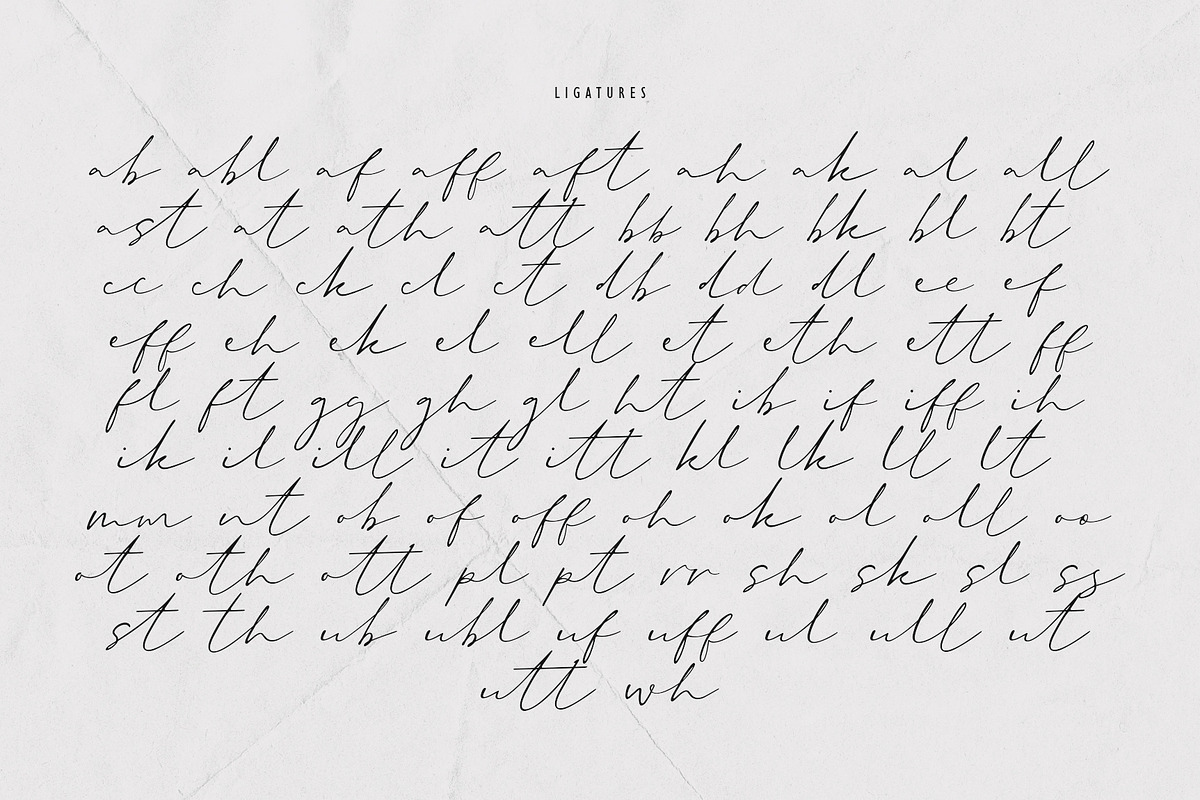 LIGATURES
ab abl af aff aft ah ak al all
ast at ath att bb bh bk bl bt
cc ch ck cl ct db dd dl ee ef
eff eh ek el ell et eth ett ff
fl ft gg gh gl ht ib if iff ih
ik il ill it itt kl lk ll lt
mm nt ob of off oh ok ol oll oo
ot oth ott pl pt rr sh sk sl ss
st th ub ubl uf uff ul ull ut
utt wh